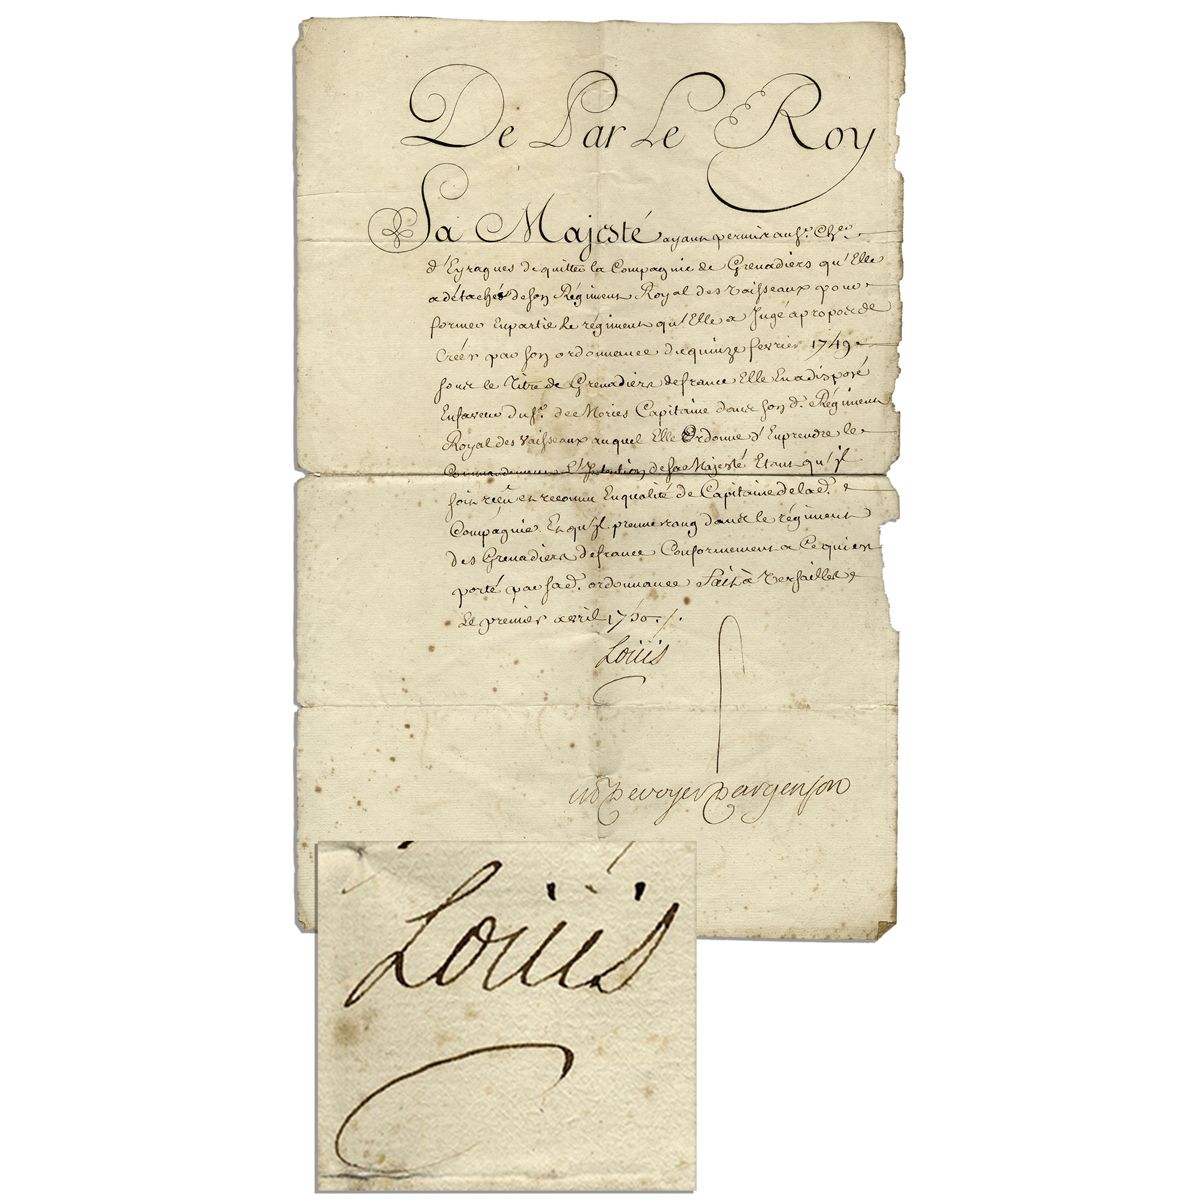 De Par Le Roy
Sa Majesté ayant permis au Sr. Cher.
d'Eyragues de quitter la Compagnie de Grenadiers qu'Elle
a détachée de son Régiment Royal des Vaisseaux pour
former en partie le régiment qu'Elle a Jugé apropos de
Créer par son ordonnance du quinze fevrier 1749
sous le Titre de Grenadiers de france Elle En a disposé
En faveur du Sr. de Mories Capitaine dans son d. Régiment
Royal des Vaisseaux auquel Elle Ordonne d'En prendre le
Commandement L'Intention de sa Majesté Etant qu'jl
soit reçu et reconnu En qualité de Capitaine de lad.
Compagnie Et qu'jl prenne rang dans le régiment
des Grenadiers de france Conformement a Ce qui est
porté par sad. ordonnance Fait à Versailles
Le premier avril 1750 ./.
Louis
De voyer D'argenson
Louis